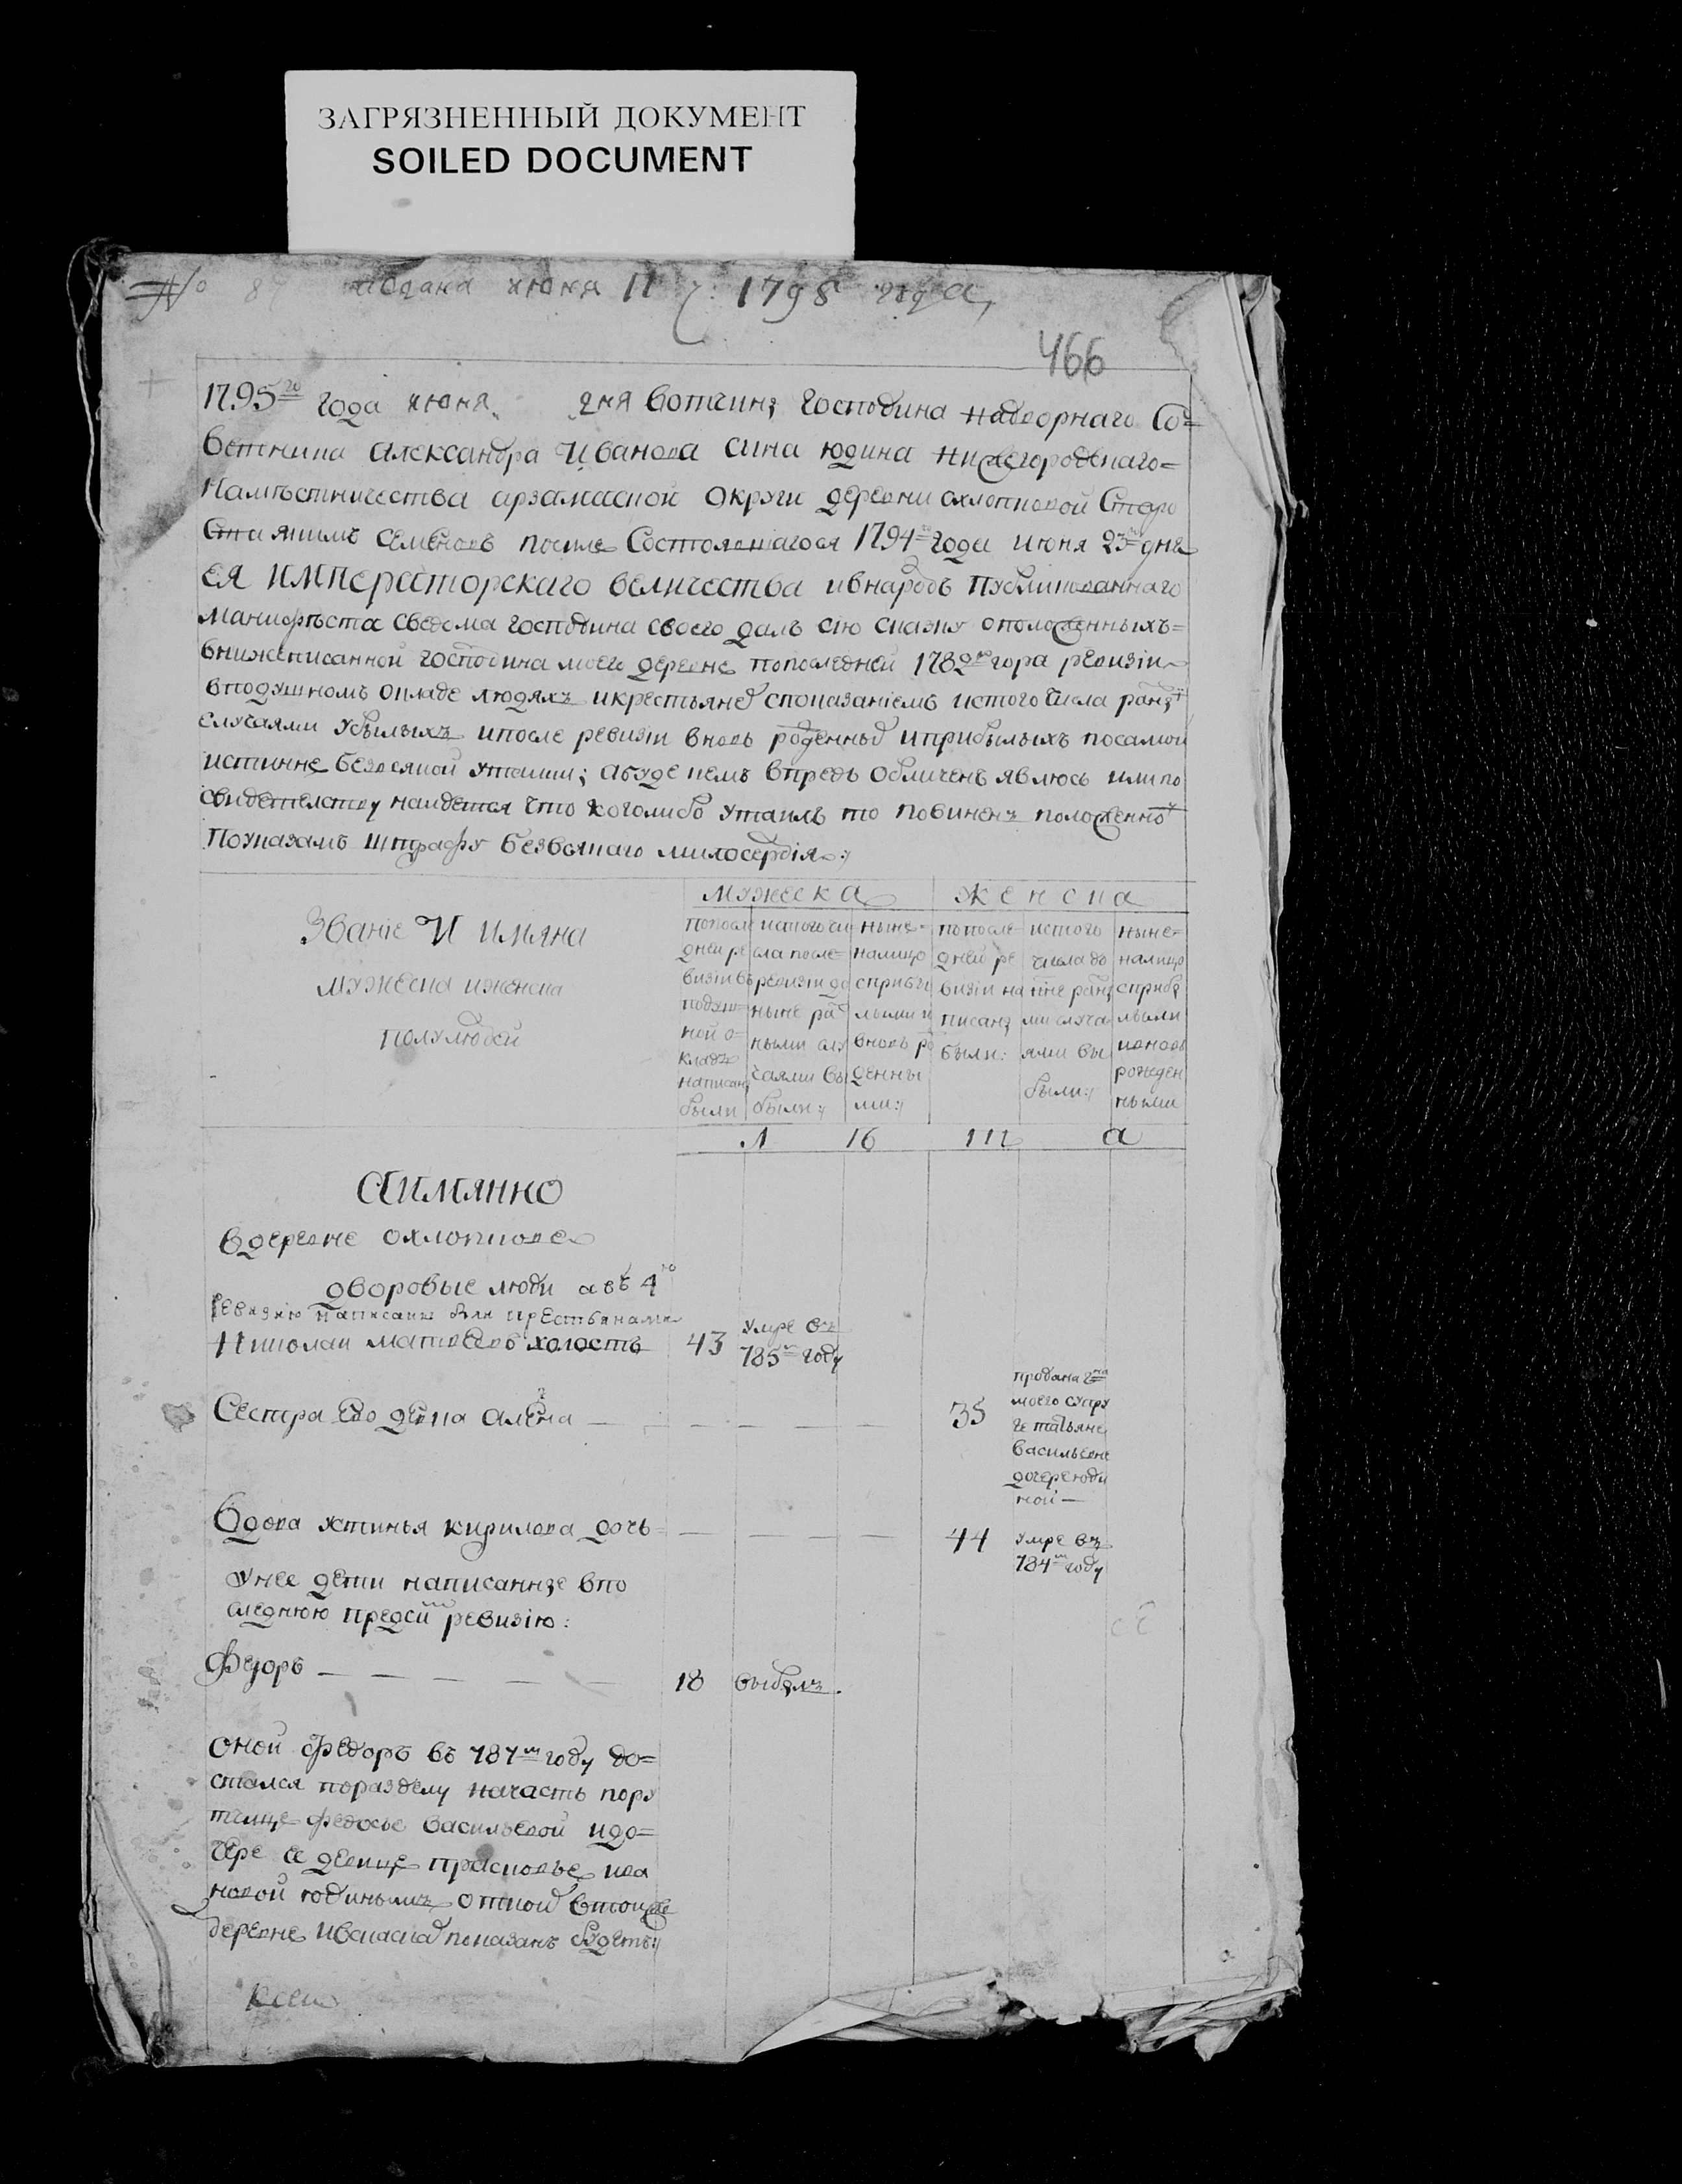 ЗАГРЯЗНЕННЫЙ ДОКУМЕНТ
SOILED DOCUMENT
№ июня 11 ч. 1795 года
466
1795го года июня дня вотчины господина надворнаго со=
ветника александра Иванова сына юдина нижегородскаго=
намѣстничества арзамаской округи деревни охлопковой старо
ста якимъ семеновъ после состоявшагося 1794го года июня 23го дня
ея ИМПераторскаго величества ивнародъ публикованнаго
манифѣста сведома господина своего далъ сию скаску оположенныхъ=
внижеписанной господина моего деревне попоследней 1782го года ревизіи
вподушномъ окладе людяхъ икрестьянех споказаниемъ истого числа разны
случаями убылыхъ ипосле ревизіи вновь рожденных иприбылыхъ посамой
истинне безовсякой утайки; абуде чемъ впредь обличенъ явлюсь илипо
свидетелству наидется что коголибо утаилъ то повиненъ положенному
Поуказамъ штрафу безвсякаго милосердія
мужеска женска
Званіе И имяна
мужеска иженска
полу людей
попосле дней ре визіи въ подуш= ной о= кладъ написаны были
истого чи сла после= ревизіи до ныне раз ными слу чаями вы были:
ныне= налицо сприбы лыми и вновь ро денны ми:
попосле= дней ре визіи на писаны были:
истого числа до ныне разны ми случа ями вы были:
ныне= налицо сприбы лыми ивновь рожден ными
л 16 а
Аимянно
вдеревне охлопкове
дворовые люди авъ 4ю
ревизію написаны были крестьянами
Николай матвеевъ холостъ 43 умре въ 785м году
Сестра ево девка алена — — — — 35 продана гна моего супру ге татьяне васильевне дочере юди ной —
Вдова устинья кирилова дочь — — — — 44 умре въ 784м году
унее дети написанные впо
следнюю предсию ревизію:
Федоръ — — — — — 18 выбылъ.
оной федоръ въ 787м году до=
стался поразделу начасть пору
тчице федосье васильевой идо=
чере ее девице прасковье ива
новой юдинымъ
деревне показанъ будетъ